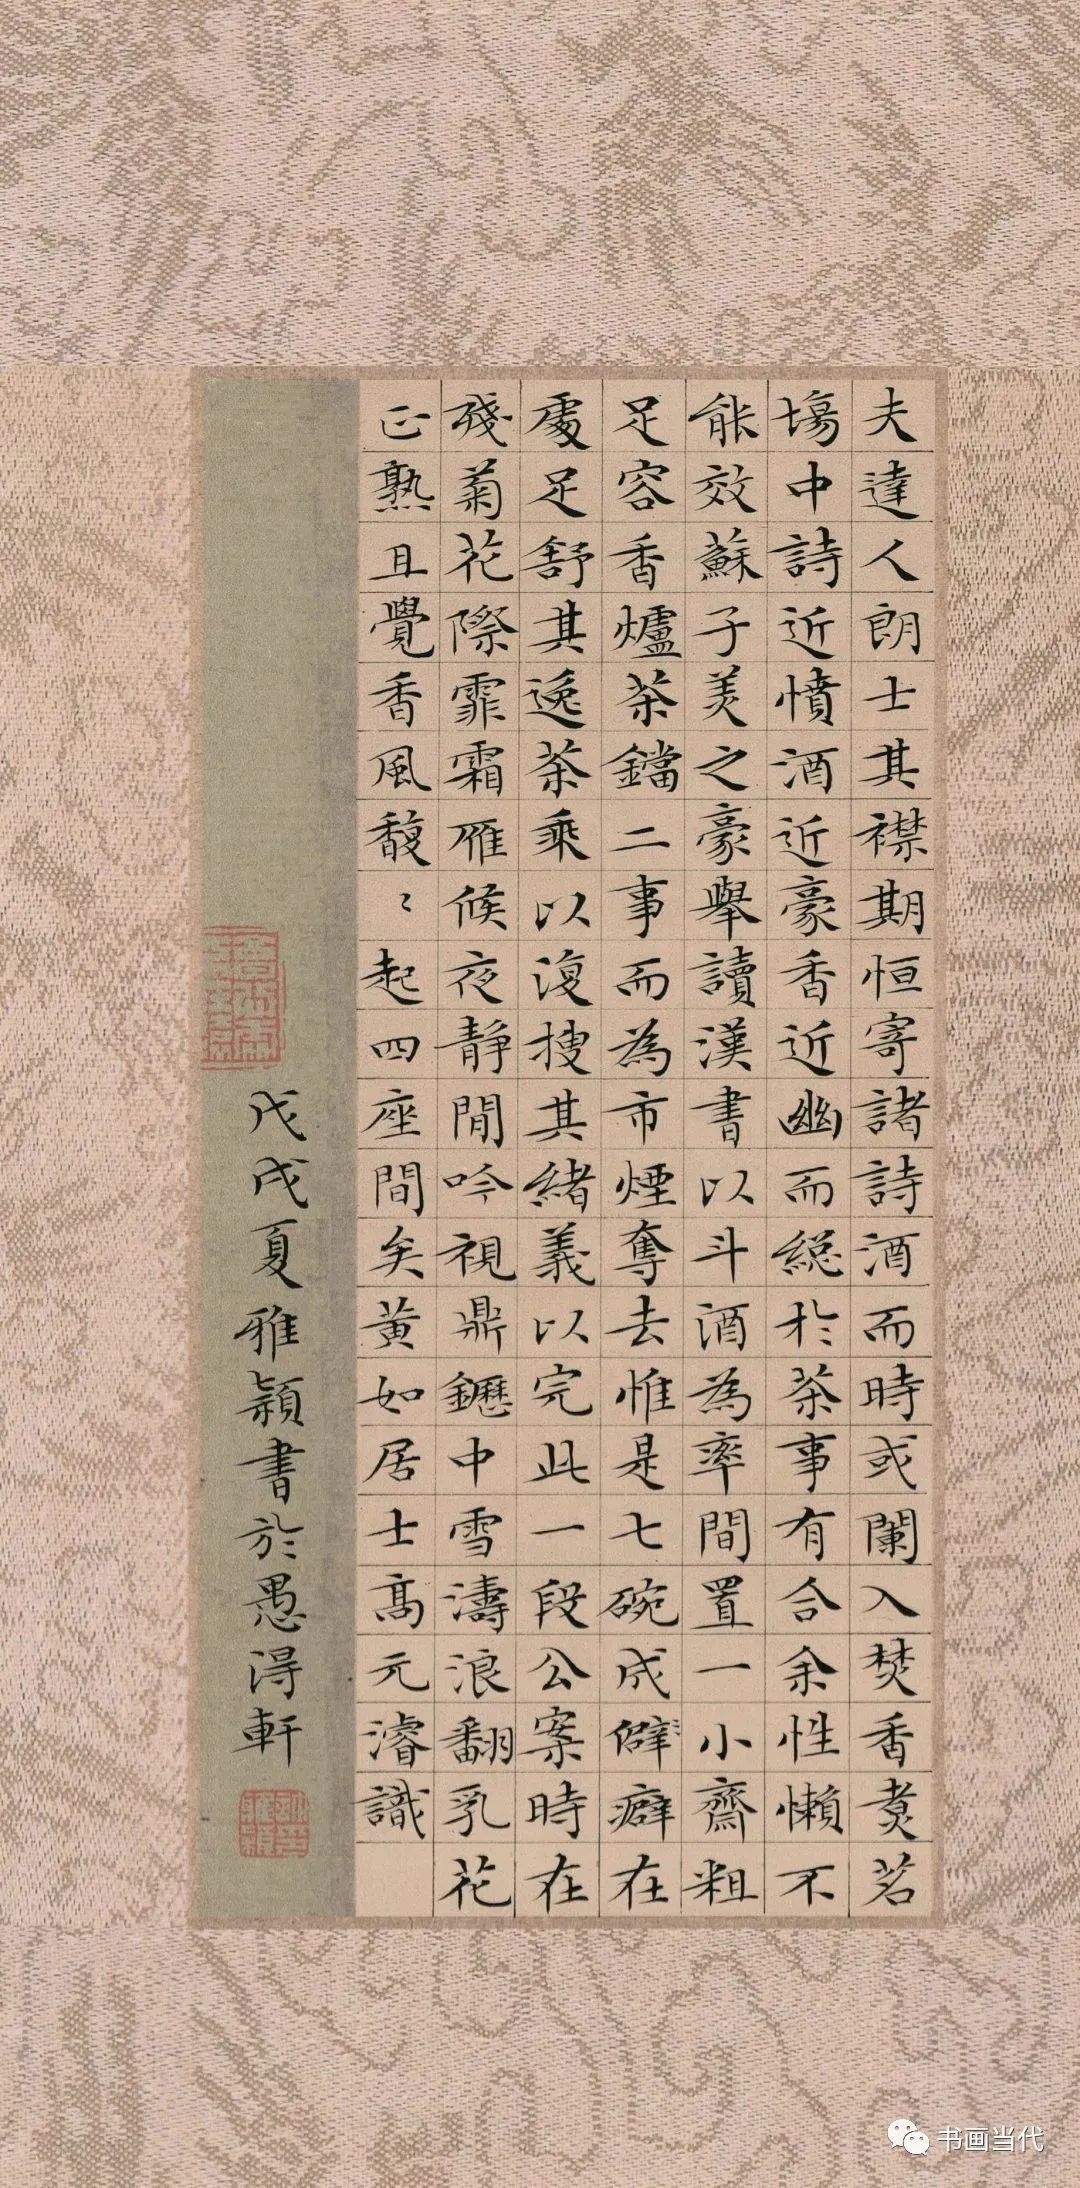 夫達人朗士其襟期恒寄諸詩酒而時或闌入焚香煑茗
塲中詩近憤酒近豪香近幽而総於茶事有合余性懶不
能效蘇子美之豪舉讀漢書以斗酒為率間置一小齋粗
足容香爐茶鐺二事而為市煙奪去惟是七碗成僻癖在
處足舒其逸茶乘以復搜其緒義以完此一段公案時在
殘菊花際霏霜雁候夜静閒吟視鼎鑩中雪濤浪翻乳花
正熟且覺香風馥〻起四座間矣黄如居士高元濬識
戊戌夏雅穎書於愚淂軒
书画当代